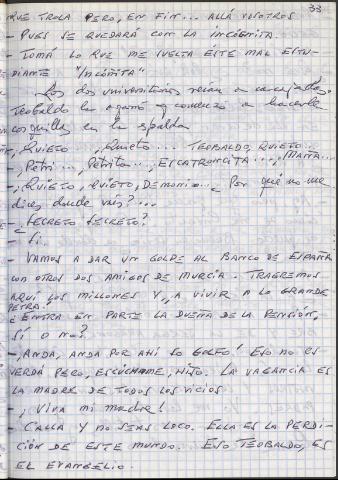 33
QUE TROLA PERO, EN FIN... ALLÁ VOSOTROS
- PUES SE QUEDARÁ CON LA INCÓGNITA.
- TOMÁ LO QUE ME SUELTA ÉSTE MAL ESTU-
DIANTE "INCÓÑITA"
Los dos universitarios reían a carcajadas.
Teobaldo la agarró y comenzó a hacerle
cosquillas en la espalda
-¡QUIETO, Quieto... TEOBALDO, QUIETO...
-¡Petri..., Petrita..., ESCATRONCITA...,
-¡QUIETO, QUIETO, DEMONIO... ¿Por qué no me
dices donde vais?...
- ¿SECRETO SECRETO?
- Sí.
- VAMOS A DAR UN GOLPE AL BANCO DE ESPAÑA
CON OTROS DOS AMIGOS DE MURCIA. TRAEREMOS
AQUÍ LOS MILLONES Y, A VIVIR A LO GRANDE
PETRA.
¿ENTRA EN PARTE LA DUEÑA DE LA PENSIÓN,
SÍ O NO?
- ¡ANDA, ANDA POR AHÍ SO GOLFO! ESO NO ES
VERDÁ PERO, ESCÚCHAME, HIJO. LA VAGANCIA ES
LA MADRE DE TODOS LOS VICIOS.
- ¡VIVA MI MADRE!
- CALLA Y NO SEAS LOCO. ELLA ES LA PERDI-
CIÓN DE ESTE MUNDO. ESO TEOBALDO, ES
EL EVANGELIO.